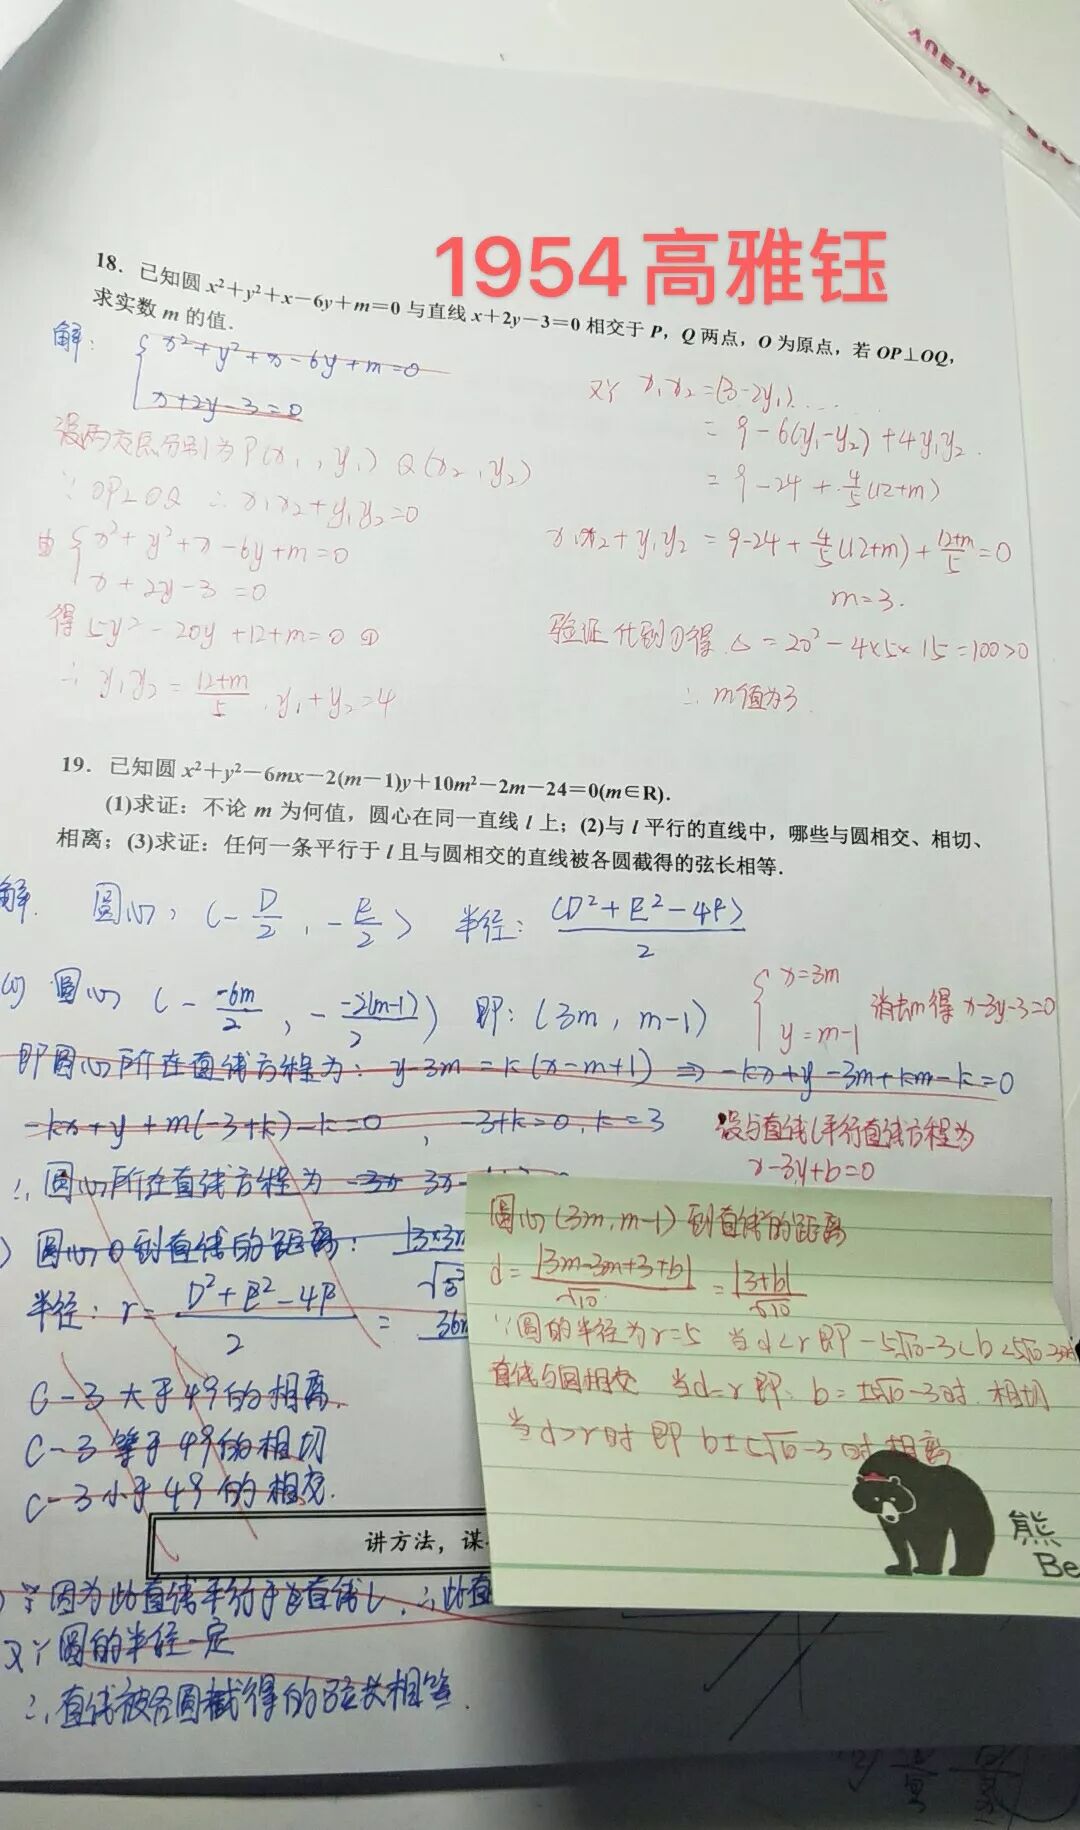 AILEUY
1954高雅钰
18. 已知圆 x²+y²+x-6y+m=0 与直线 x+2y-3=0 相交于 P,Q 两点,O 为原点,若 OP⊥OQ,
求实数 m 的值.
解: { x²+y²+x-6y+m=0
x+2y-3=0
设两交点分别为P(x₁,y₁) Q(x₂,y₂)
∵ OP⊥OQ ∴ x₁x₂+y₁y₂=0
由 { x²+y²+x-6y+m=0
x+2y-3=0
得 5y²-20y+12+m=0 ①
∴ y₁y₂ = (12+m)/5 , y₁+y₂=4
又∵ x₁x₂=(3-2y₁)......
= 9-6(y₁-y₂)+4y₁y₂.
= 9-24+4/5(12+m)
x₁x₂+y₁y₂ = 9-24+4/5(12+m)+(12+m)/5=0
m=3.
验证 代到①得 △=20²-4×5×15=100>0
∴ m值为3.
19. 已知圆 x²+y²-6mx-2(m-1)y+10m²-2m-24=0(m∈R).
(1)求证:不论 m 为何值,圆心在同一直线 l 上;(2)与 l 平行的直线中,哪些与圆相交、相切、
相离;(3)求证:任何一条平行于 l 且与圆相交的直线被各圆截得的弦长相等.
解. 圆心, (-D/2, -E/2) 半径: (D²+E²-4F)/2
(1) 圆心 (- -6m/2, - -2(m-1)/2) 即: (3m, m-1)
{ x=3m
y=m-1
消去m得 x-3y-3=0
即圆心所在直线方程为: y-3m=k(x-m+1) ⇒ -kx+y-3m+km-k=0
-kx+y+m(-3+k)-k=0 , -3+k=0, k=3
设与直线l平行直线方程为
x-3y+b=0
∴ 圆心所在直线方程为 -3x 3x-
) 圆心O到直线的距离: |3×3m
半径: r= (D²+E²-4F)/2 = 36m
C-3大于49的相离.
C-3等于49的相切
C-3小于49的相交.
圆心(3m, m-1)到直线的距离
d= |3m-3m+3+b|/√10 = |3+b|/√10
∵圆的半径为r=5 当d<r即 -5√10-3<b<5√10-3时
直线与圆相交 当d=r即: b=±5√10-3时.相切
当d>r时 即 b±5√10-3时相离
熊
Be
讲方法,谋
) ∵因为此直线平行于直线L, ∴此直
又∵圆的半径一定
∴直线被各圆截得的弦长相等.